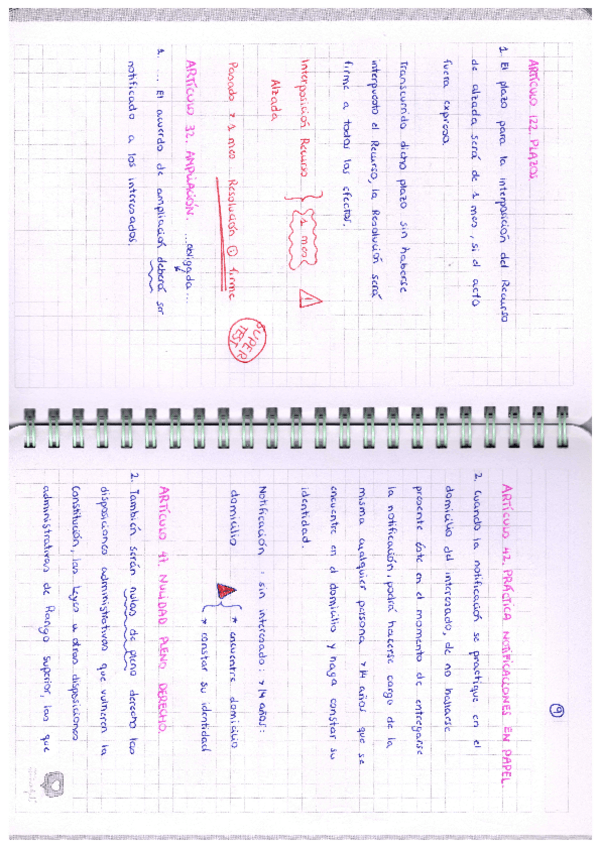 ARTÍCULO 122. PLAZOS.
1. El plazo para la interposición del Recurso
de alzada será de 1 mes, si el acto
fuera expreso.
Transcurrido dicho plazo sin haberse
interpuesto el Recurso, la Resolución será
firme a todos los efectos.
Interposición Recurso } { 1 mes }
Alzada
Pasado > 1 mes Resolución firme
SUPER TEST
ARTÍCULO 32. AMPLIACIÓN. ...obligada...
1. ... El acuerdo de ampliación deberá ser
notificado a los interesados.
9
ARTÍCULO 42. PRÁCTICA NOTIFICACIONES EN PAPEL.
2. Cuando la notificación se practique en el
domicilio del interesado, de no hallarse
presente éste en el momento de entregarse
la notificación, podrá hacerse cargo de la
misma cualquier persona > 14 años que se
encuentre en el domicilio y haga constar su
identidad.
Notificación : sin interesado: > 14 años:
domicilio { * encuentre domicilio
* constar su identidad
ARTÍCULO 47. NULIDAD PLENO DERECHO.
2. También serán nulas de pleno derecho las
disposiciones administrativas que vulneren la
Constitución, las leyes u otras disposiciones
administrativas de Rango superior, las que